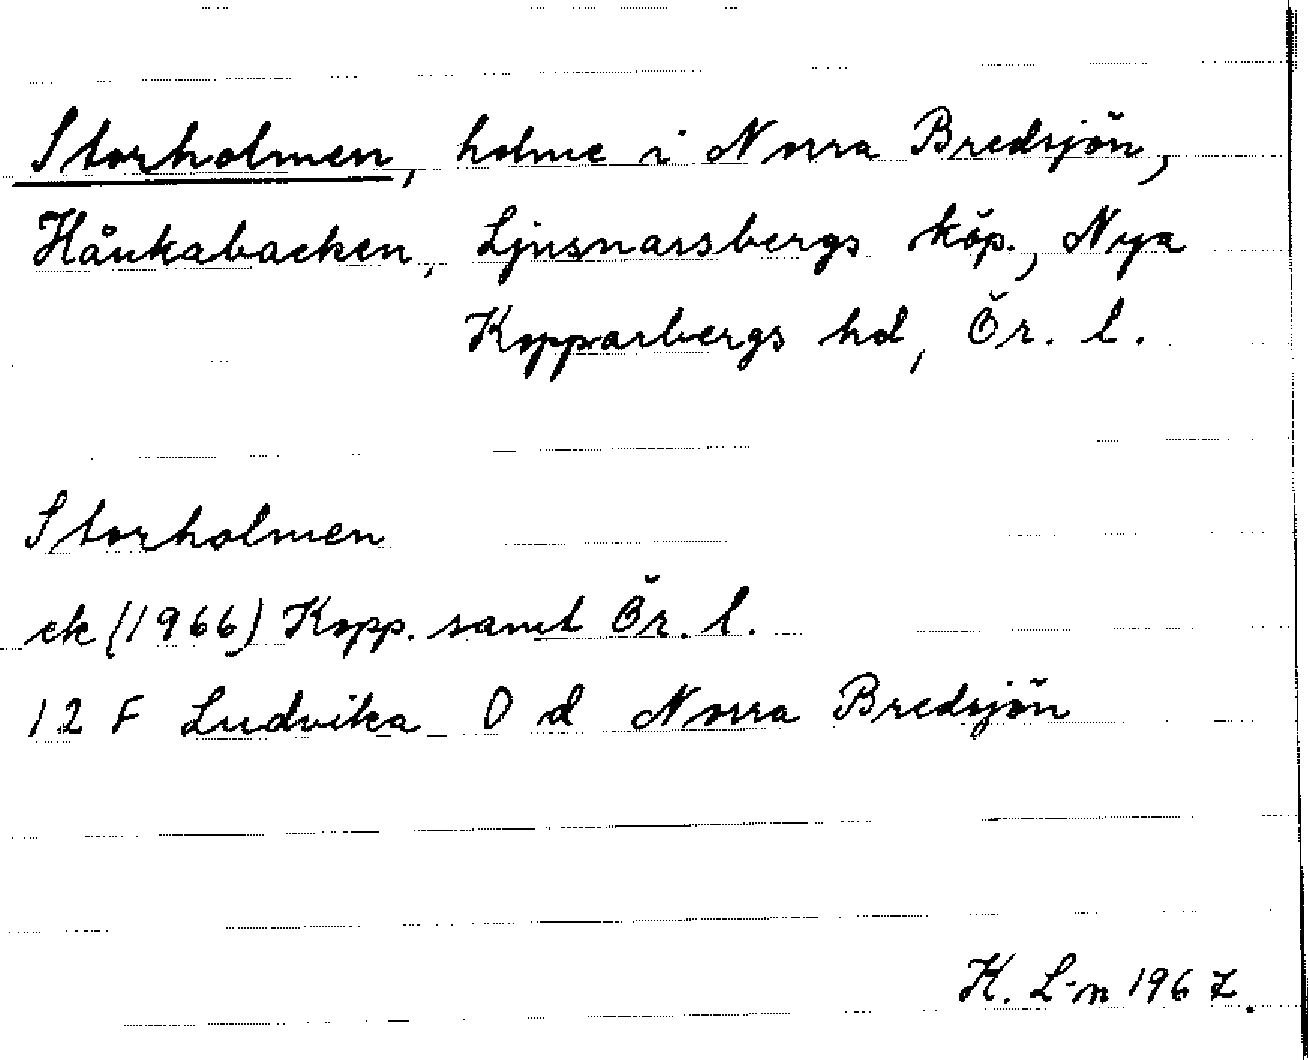 Storholmen, holme i Norra Bredsjön,
Håukabacken, Ljusnarsbergs köp., Nya
Kopparbergs hd, Ör. l.
Storholmen
ek (1966) Kopp. samt Ör. l.
12 F Ludvika 0 d Norra Bredsjön
H. L-n 1967.